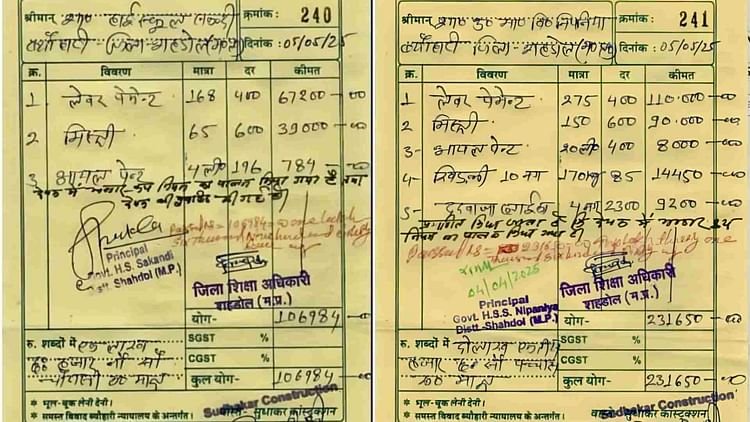 श्रीमान् शास० हाई स्कूल सकन्दी क्रमांक : 240
ब्यौहारी जिला शहडोल (म०प्र०) दिनांक : 05/05/25
क्र. विवरण मात्रा दर कीमत
1 लेबर पेमेन्ट 168 400 67200 =00
2 मिस्त्री 65 600 39000 =00
3 आयल पेन्ट 4 ली० 196 784 =00
Passed Rs = 106984 = 00 one lakh
six thousand Nine hundred and eighty
four
Principal
Govt. H.S. Sakandi
Distt. Shahdol (M.P.)
जिला शिक्षा अधिकारी
शहडोल (म.प्र.)
योग- 106984 =00
रु. शब्दों में एक लाख SGST %
छः हजार नौ सौ CGST %
चौरासी रु० मात्र कुल योग- 106984 =00
Sudhakar Construction
* भूल-चूक लेनी देनी।
* समस्त विवाद ब्यौहारी न्यायालय के अन्तर्गत। वास्ते- सुधाकर कांस्ट्रक्शन
श्रीमान् शास० उ० मा० वि० निपनिया क्रमांक : 241
ब्यौहारी जिला शहडोल (म०प्र०) दिनांक : 05/05/25
क्र. विवरण मात्रा दर कीमत
1 लेबर पेमेन्ट 275 400 110000 =00
2 मिस्त्री 150 600 90000 =00
3- आयल पेन्ट 20 ली० 400 8000 =00
4- खिड़की 10 नग 170 kg 85 14450 =00
5- दरवाजा 4 नग 2300 9200 =00
04/04/2025
Principal
Govt. H.S.S. Nipaniya
Distt.-Shahdol (M.P.)
जिला शिक्षा अधिकारी
शहडोल (म.प्र.)
योग- 231650 =00
रु. शब्दों में दो लाख इकतीस SGST %
हजार छः सौ पचास CGST %
रु० मात्र कुल योग- 231650 =00
Sudhakar Construction
* भूल-चूक लेनी देनी।
* समस्त विवाद ब्यौहारी न्यायालय के अन्तर्गत। वास्ते- सुधाकर कांस्ट्रक्शन